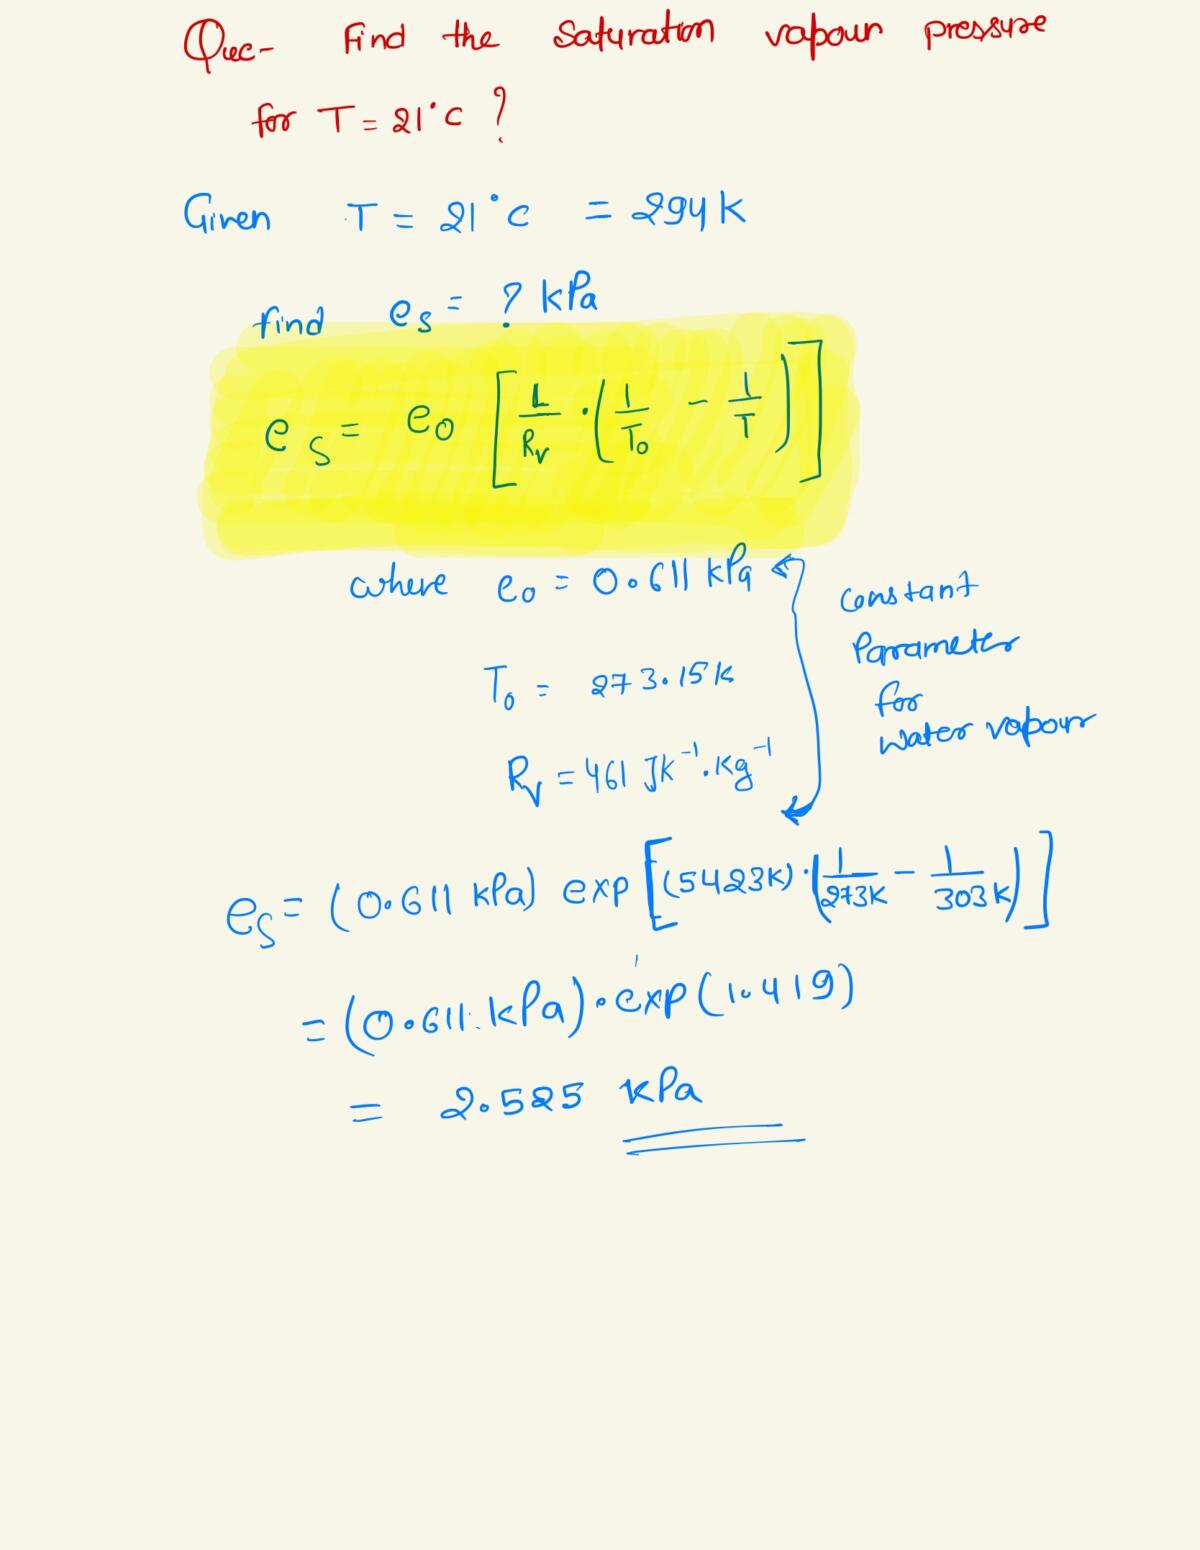 Que- Find the Saturation vapour pressure
for T = 21°C ?
Given T = 21°C = 294K
find es = ? kPa
es = eo [L/Rv · (1/To - 1/T)]
where eo = 0.611 kPa
T0 = 273.15K
Rv = 461 JK⁻¹.Kg⁻¹
Constant
Parameter
for
Water vapour
es = (0.611 kPa) exp [(5423K)·(1/273K - 1/303K)]
= (0.611.kPa)·exp(1.419)
= 2.525 kPa